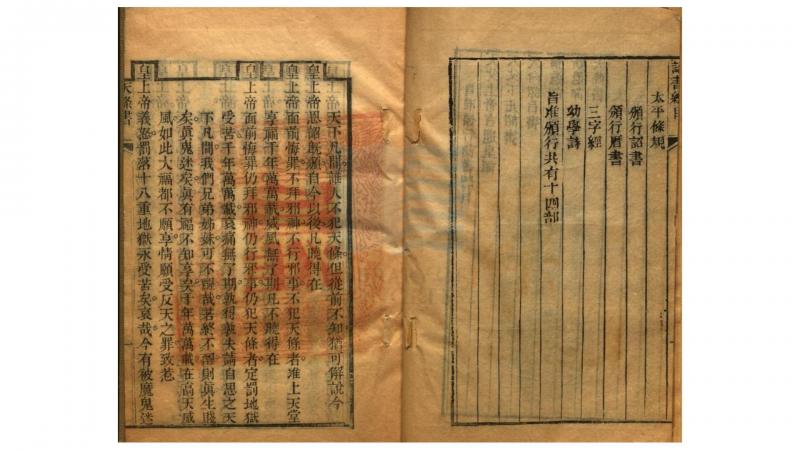 詔書總目
太平條規
頒行詔書
頒行曆書
三字經
幼學詩
旨准頒行共有十四部
天下凡間誰人不犯天條但從前不知猶可解說今
皇上帝恩詔既頒自今以後凡曉得在
皇上帝面前悔罪不拜邪神不行邪事不犯天條者准上天堂
享福千年萬萬載威風無了期凡不曉得在
皇上帝面前悔罪仍拜邪神仍行邪事仍犯天條者定罰地獄
受苦千年萬萬載哀痛無了期孰得孰失請自思之天
下凡間我們兄弟姊妹可不醒哉若終不醒則真生賤
矣真鬼迷矣真有福不知享矣千年萬萬載在高天威
風如此大福都不願享情願受反天之罪致惹
皇上帝義怒罰落十八重地獄永受苦矣哀哉今有被魔鬼迷
天條書